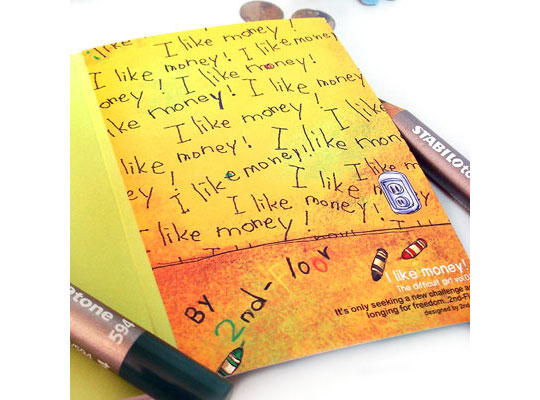 like I like money!
I like money! I like money!
oney! I like money!
ike money! I like money!
I like money!
I like money! I like
money! I like money!
I like m
I like money!
like money! money!
By 2nd-Floor
I like money!
The difficult girl vol.0
It's only seeking a new challenge a
longing for freedom..2nd-Fl
designed by 2nd
STABILOtone
tone 594